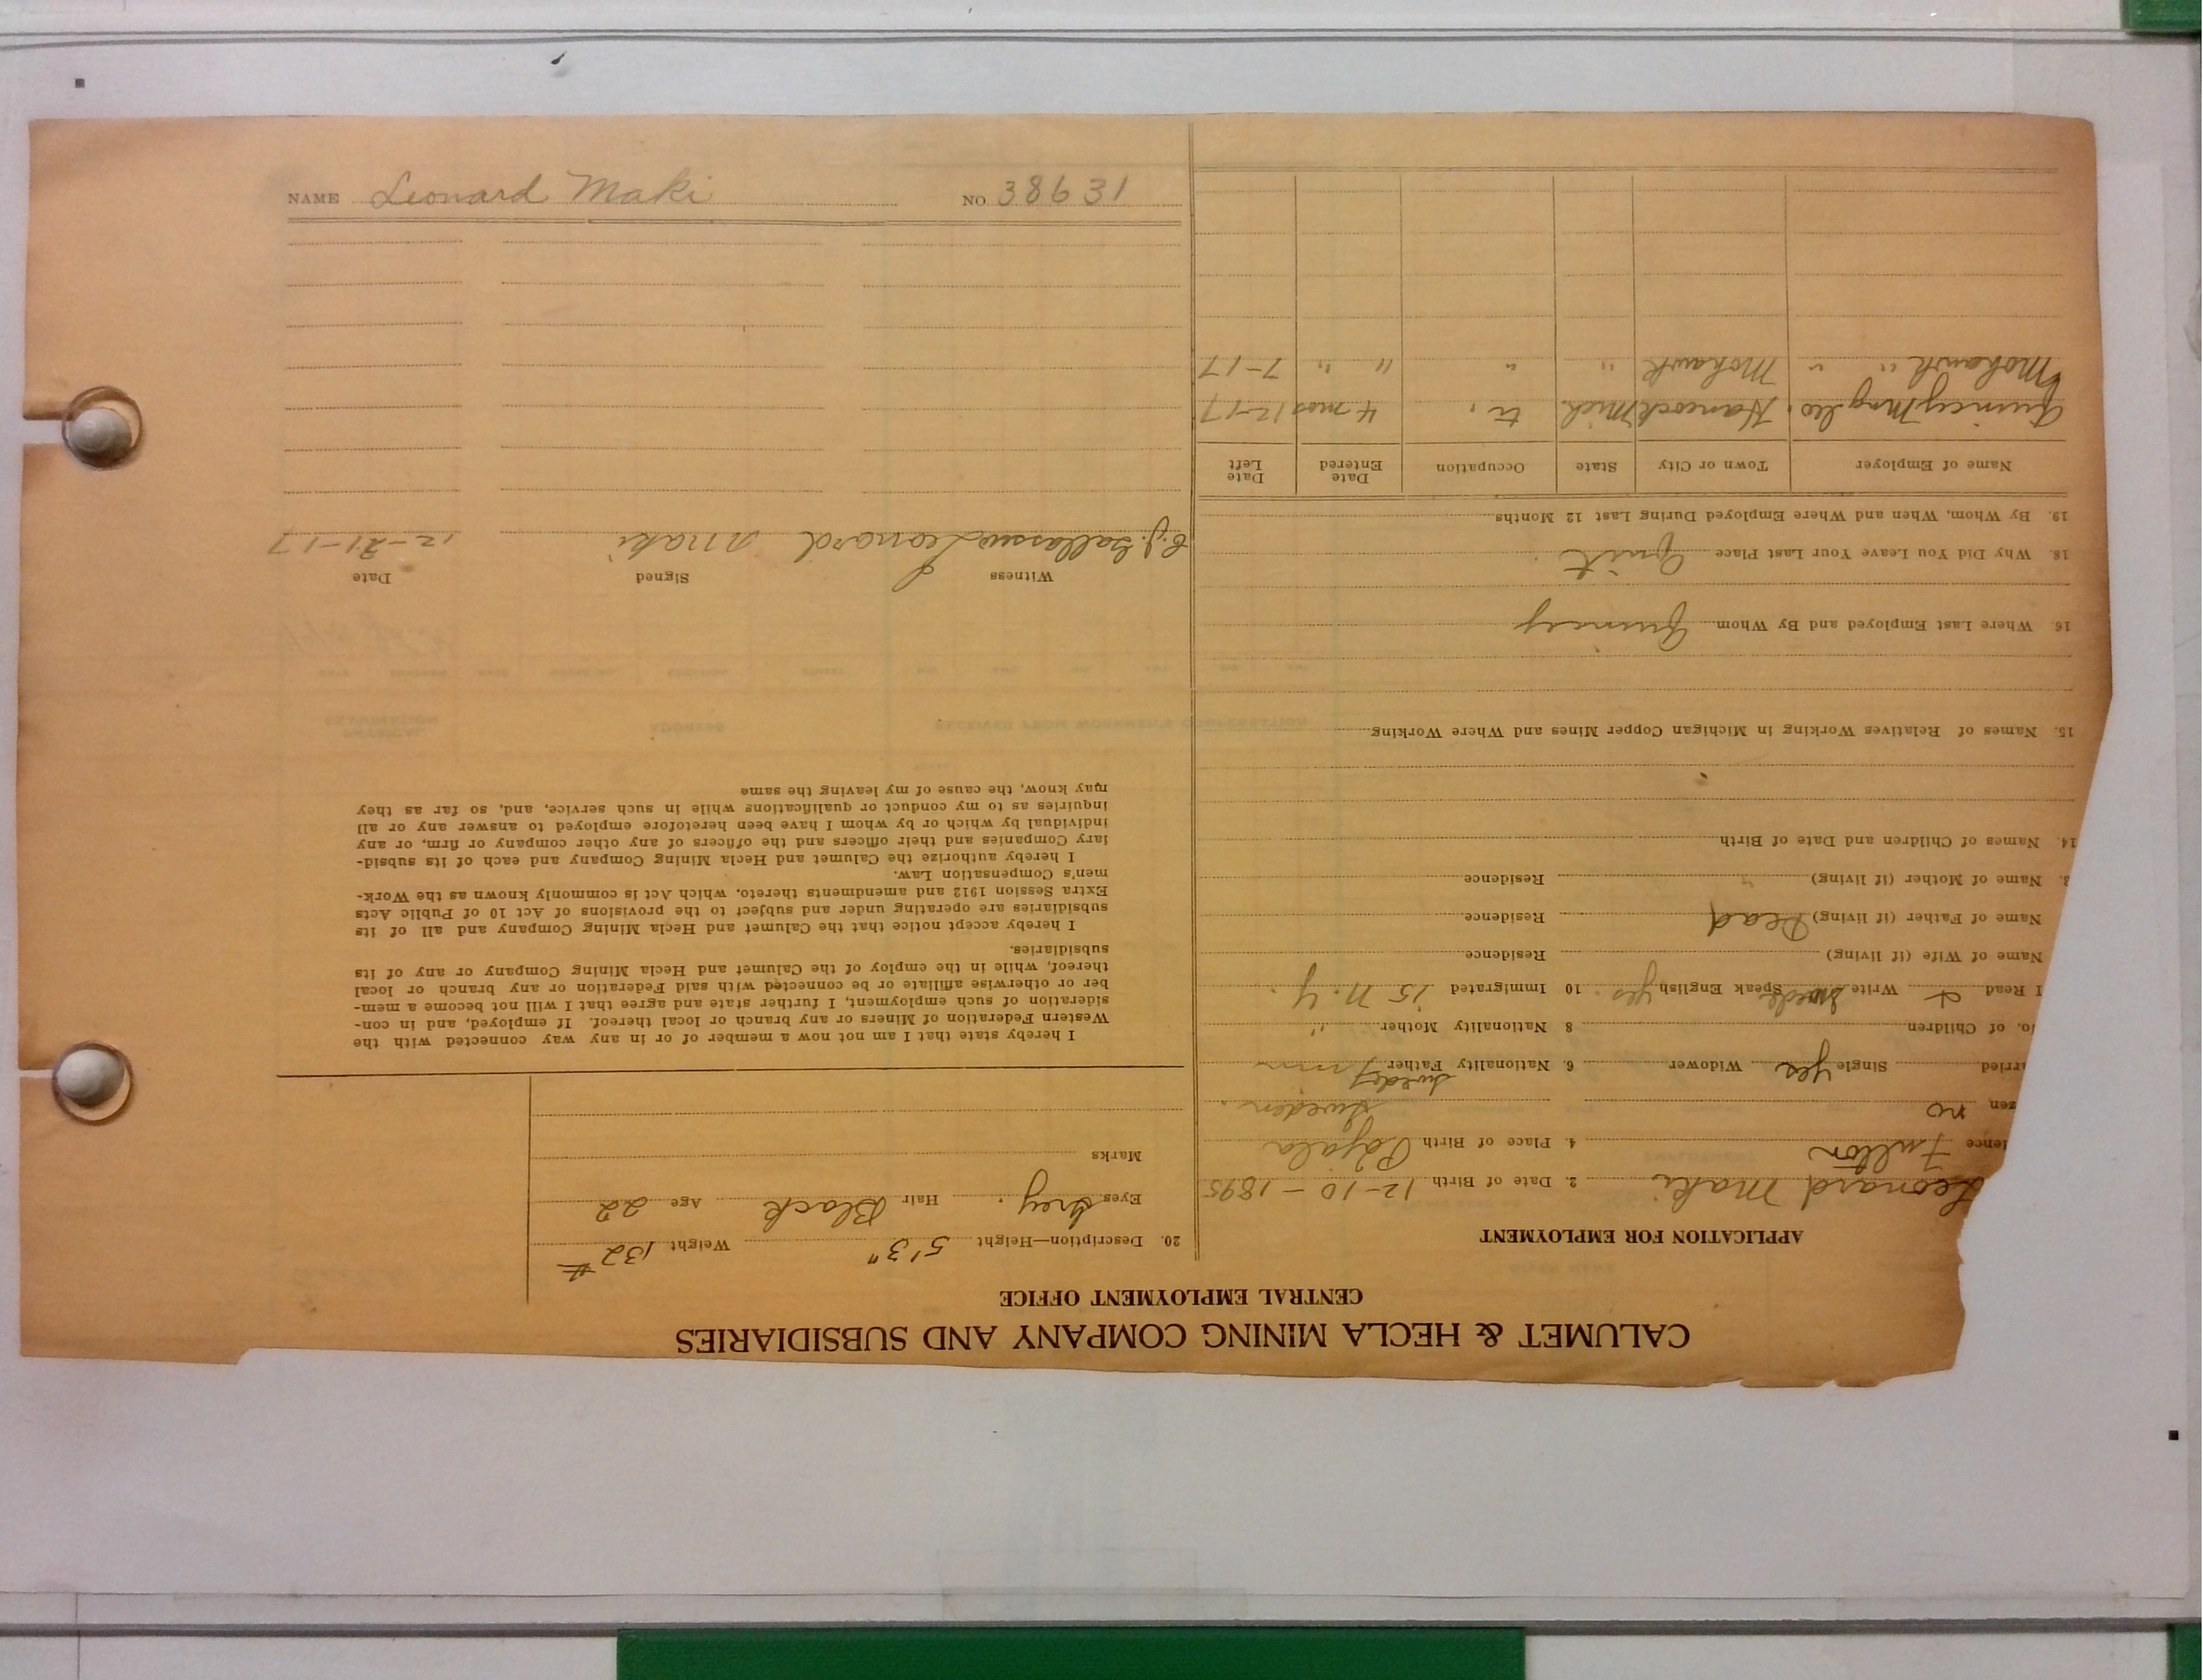 NAME Leonard Maki NO 38631
CALUMET & HECLA MINING COMPANY AND SUBSIDIARIES
CENTRAL EMPLOYMENT OFFICE
APPLICATION FOR EMPLOYMENT
Leonard Maki 2. Date of Birth 12-10-1895
dence Fulton 4. Place of Birth Pajala
zen no Sweden.
rried Single yes Widower 6. Nationality Father
No. of Children 8 Nationality Mother "
I Read & Write Swede Speak English yes. 10 Immigrated 15 N.Y.
Name of Wife (if living) Residence
Name of Father (if living) Dead Residence
3. Name of Mother (if living) " Residence
14. Names of Children and Date of Birth
15. Names of Relatives Working in Michigan Copper Mines and Where Working
16. Where Last Employed and By Whom Quincy
18. Why Did You Leave Your Last Place Quit
19. By Whom, When and Where Employed During Last 12 Months
Name of Employer Town or City State Occupation Date Entered Date Left
Quincy Mng Co. Hancock Mich tr. 4 mos 12-17
Mohawk " " Mohawk " " " " 7-17
20. Description—Height 5'3" Weight 132#
Eyes Grey. Hair Black Age 22
Marks
I hereby state that I am not now a member of or in any way connected with the
Western Federation of Miners or any branch or local thereof. If employed, and in con-
sideration of such employment, I further state and agree that I will not become a mem-
ber or otherwise affiliate or be connected with said Federation or any branch or local
thereof, while in the employ of the Calumet and Hecla Mining Company or any of its
subsidiaries.
I hereby accept notice that the Calumet and Hecla Mining Company and all of its
subsidiaries are operating under and subject to the provisions of Act 10 of Public Acts
Extra Session 1912 and amendments thereto, which Act is commonly known as the Work-
men's Compensation Law.
I hereby authorize the Calumet and Hecla Mining Company and each of its subsid-
iary Companies and their officers and the officers of any other company or firm, or any
individual by which or by whom I have been heretofore employed to answer any or all
inquiries as to my conduct or qualifications while in such service, and, so far as they
may know, the cause of my leaving the same
Witness Signed Date
Leonard Maki 12-21-17